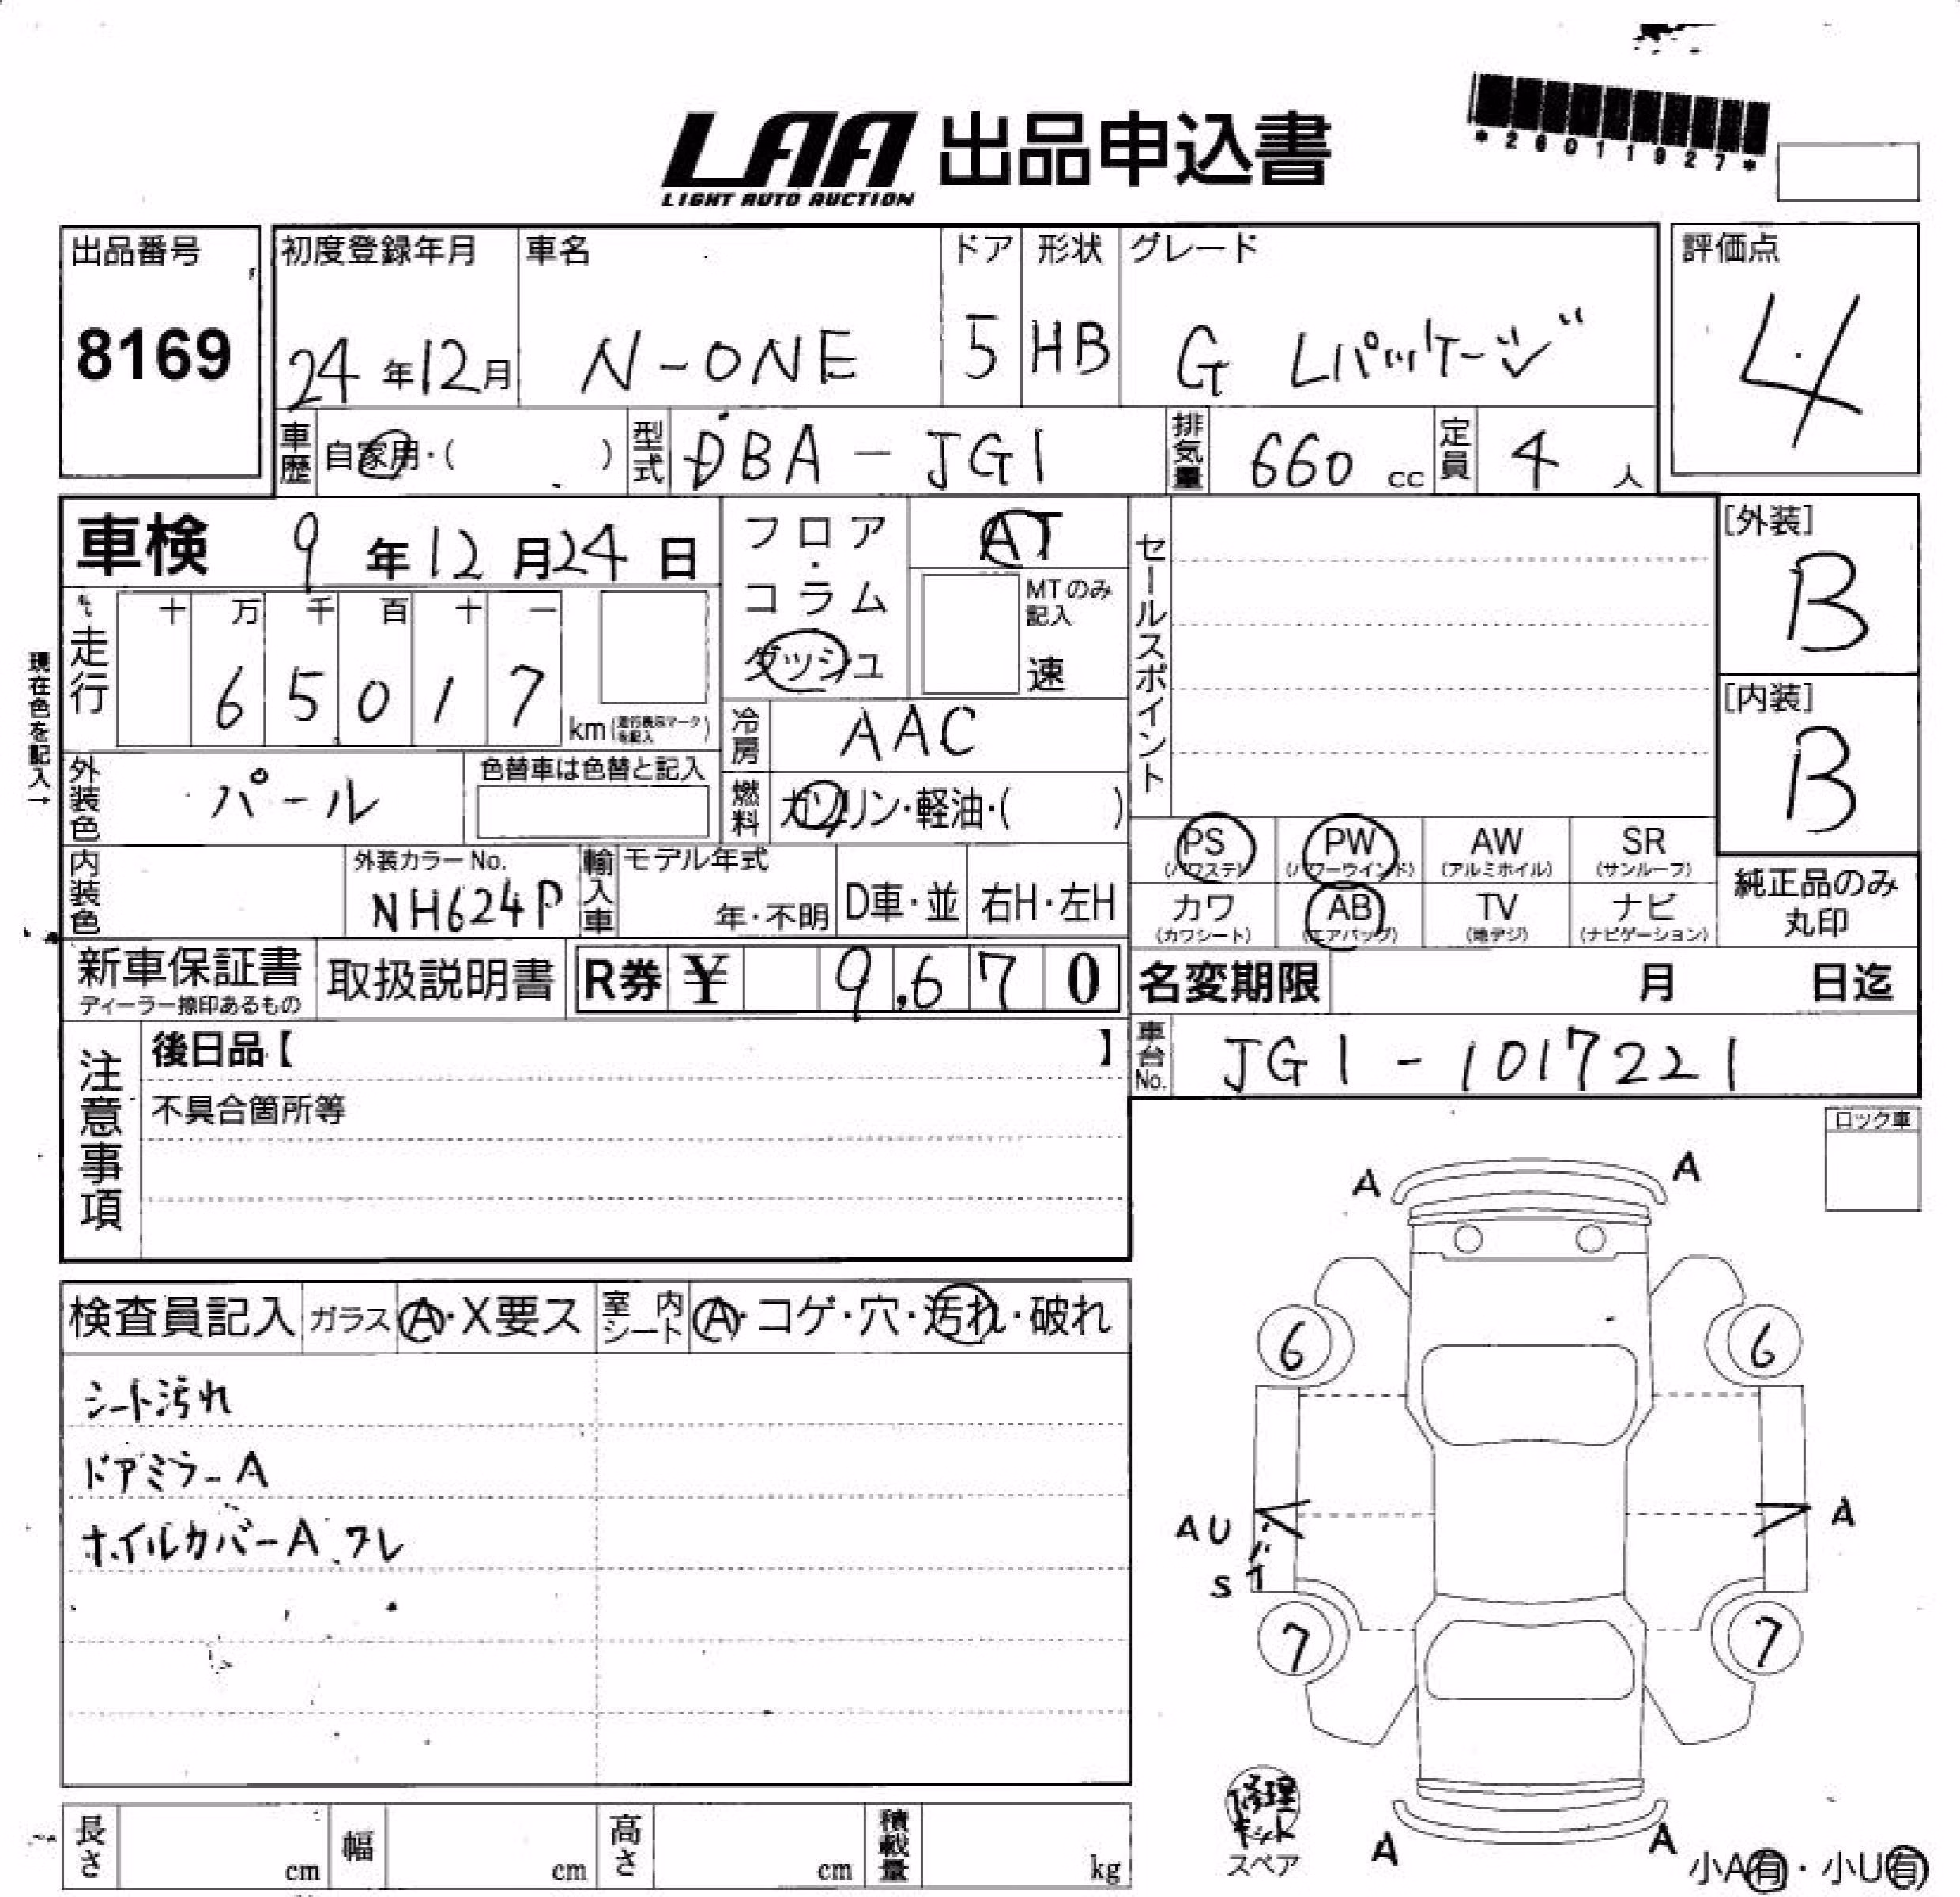 *26011927*
LAA 出品申込書
LIGHT AUTO AUCTION
出品番号 初度登録年月 車名 ドア 形状 グレード 評価点
8169 24年12月 N-ONE 5 HB G Lパッケージ 4
車歴 自家用・( ) 型式 DBA-JG1 排気量 660cc 定員 4人
車検 9年12月24日
フロア・コラム ダッシュ
AT
MTのみ記入
速
セールスポイント
[外装]
B
[内装]
B
現在色を記入→
走行 十 万 千 百 十 一
6 5 0 1 7 km(走行表示マークを記入)
冷房 AAC
外装色 パール 色替車は色替と記入
燃料 ガソリン・軽油・( )
PS PW AW SR
(パワステ) (パワーウインド) (アルミホイル) (サンルーフ)
カワ AB TV ナビ
(カワシート) (エアバッグ) (地デジ) (ナビゲーション)
純正品のみ
丸印
内装色 外装カラーNo. NH624P
輸入車 モデル年式 年・不明 D車・並 右H・左H
新車保証書 取扱説明書 R券 ¥ 9,670
ディーラー捺印あるもの
名変期限 月 日迄
車台No. JG1-1017221
注意事項
後日品【 】
不具合箇所等
ロック車
検査員記入 ガラス A・X要ス 室内シート A・コゲ・穴・汚れ・破れ
シート汚れ
ドアミラーA
ホイルカバーA フレ
A A
6 6
AU A
S
7 7
修理キット
スペア
A A
小A有・小U有
長さ cm 幅 cm 高さ cm 積載量 kg